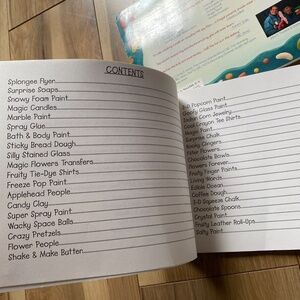 CONTENTS
Splongee Flyer
Surprise Soaps
Snowy Foam Paint
Magic Candles
Marble Paint
Spray Glue
Bath & Body Paint
Sticky Bread Dough
Silly Stained Glass
Magic Flowers Transfers
Fruity Tie-Dye Shirts
Freeze Pop Paint
Applehead People
Candy Clay
Super Spray Paint
Wacky Space Balls
Crazy Pretzels
Flower People
Shake & Make Batter
3-D Popcorn Paint
Goofy Glass Paint
Indian Corn Jewelry
Cool Crayon Tee Shirts
Magic Paint
Surprise Chalk
Kooky Clingers
Filter Flowers
Chocolate Bowls
Flowers Forever
Fruity Finger Paints
Living Words
Edible Ocean
Coffee Dough
3-D Squeeze Chalk
Chocolate Spoons
Crystal Paint
Fruity Leather Roll-Ups
Salty Paint